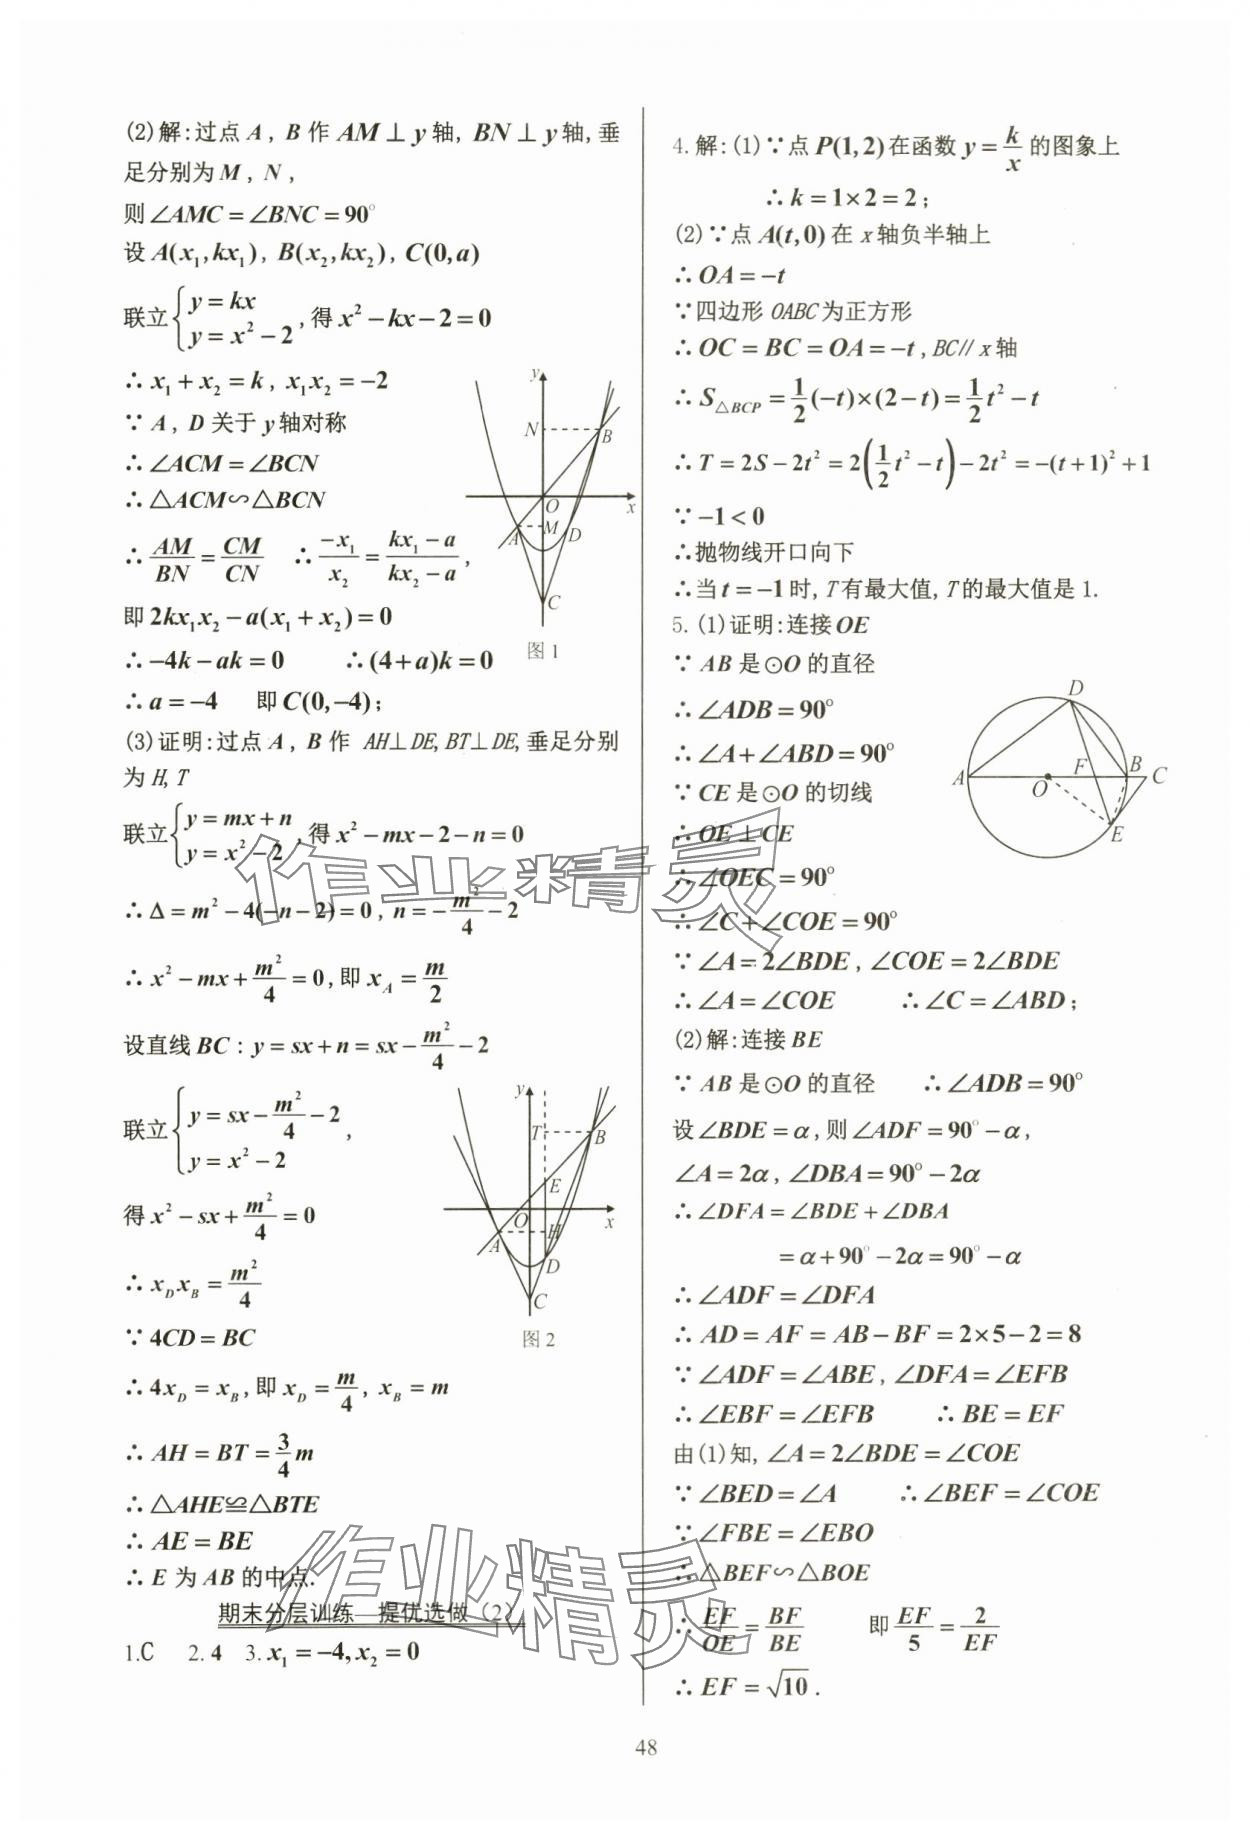 (2)解:过点 A, B 作 AM⊥y轴, BN⊥y轴,垂
足分别为 M, N,
则∠AMC=∠BNC=90°
设 A(x₁,kx₁), B(x₂,kx₂), C(0,a)
联立{y=kx
y=x²-2 ,得 x²-kx-2=0
∴ x₁+x₂=k, x₁x₂=-2
∵ A, D 关于 y轴对称
∴ ∠ACM=∠BCN
∴ △ACM∽△BCN
∴ AM/BN=CM/CN ∴ -x₁/x₂=(kx₁-a)/(kx₂-a),
即 2kx₁x₂-a(x₁+x₂)=0
∴ -4k-ak=0 ∴(4+a)k=0
∴ a=-4 即 C(0,-4);
y
N
B
O
x
A
M
D
C
图1
(3)证明:过点 A, B 作 AH⊥DE, BT⊥DE,垂足分别
为 H, T
联立{y=mx+n
y=x²-2 ,得 x²-mx-2-n=0
∴ Δ=m²-4(-n-2)=0, n=-m²/4-2
∴ x²-mx+m²/4=0,即 x_A=m/2
设直线 BC: y=sx+n=sx-m²/4-2
联立{y=sx-m²/4-2
y=x²-2 ,
得 x²-sx+m²/4=0
∴ x_Dx_B=m²/4
∵ 4CD=BC
∴ 4x_D=x_B,即 x_D=m/4, x_B=m
∴ AH=BT=3/4m
∴ △AHE≌△BTE
∴ AE=BE
∴ E 为 AB 的中点.
y
T
B
E
O
x
A
H
D
C
图2
期末分层训练—提优选做(2)
1.C 2.4 3.x₁=-4,x₂=0
4.解:(1)∵点 P(1,2)在函数 y=k/x 的图象上
∴ k=1×2=2;
(2)∵点 A(t,0)在 x轴负半轴上
∴ OA=-t
∵四边形 OABC为正方形
∴ OC=BC=OA=-t,BC∥x轴
∴ S△BCP=1/2(-t)×(2-t)=1/2t²-t
∴ T=2S-2t²=2(1/2t²-t)-2t²=-(t+1)²+1
∵ -1<0
∴抛物线开口向下
∴当 t=-1时, T有最大值, T的最大值是 1.
5.(1)证明:连接OE
∵ AB 是⊙O 的直径
∴ ∠ADB=90°
∴ ∠A+∠ABD=90°
∵ CE 是⊙O 的切线
∴ OE⊥CE
∴ ∠OEC=90°
∴ ∠C+∠COE=90°
∵ ∠A=2∠BDE, ∠COE=2∠BDE
∴ ∠A=∠COE ∴ ∠C=∠ABD;
D
A
O
F
B
C
E
(2)解:连接BE
∵ AB 是⊙O 的直径 ∴ ∠ADB=90°
设∠BDE=α,则∠ADF=90°-α,
∠A=2α, ∠DBA=90°-2α
∴ ∠DFA=∠BDE+∠DBA
=α+90°-2α=90°-α
∴ ∠ADF=∠DFA
∴ AD=AF=AB-BF=2×5-2=8
∵ ∠ADF=∠ABE, ∠DFA=∠EFB
∴ ∠EBF=∠EFB ∴ BE=EF
由(1)知, ∠A=2∠BDE=∠COE
∵ ∠BED=∠A ∴ ∠BEF=∠COE
∵ ∠FBE=∠EBO
∴ △BEF∽△BOE
∴ EF/OE=BF/BE 即 EF/5=2/EF
∴ EF=√10.
作业精灵
作业精灵
48